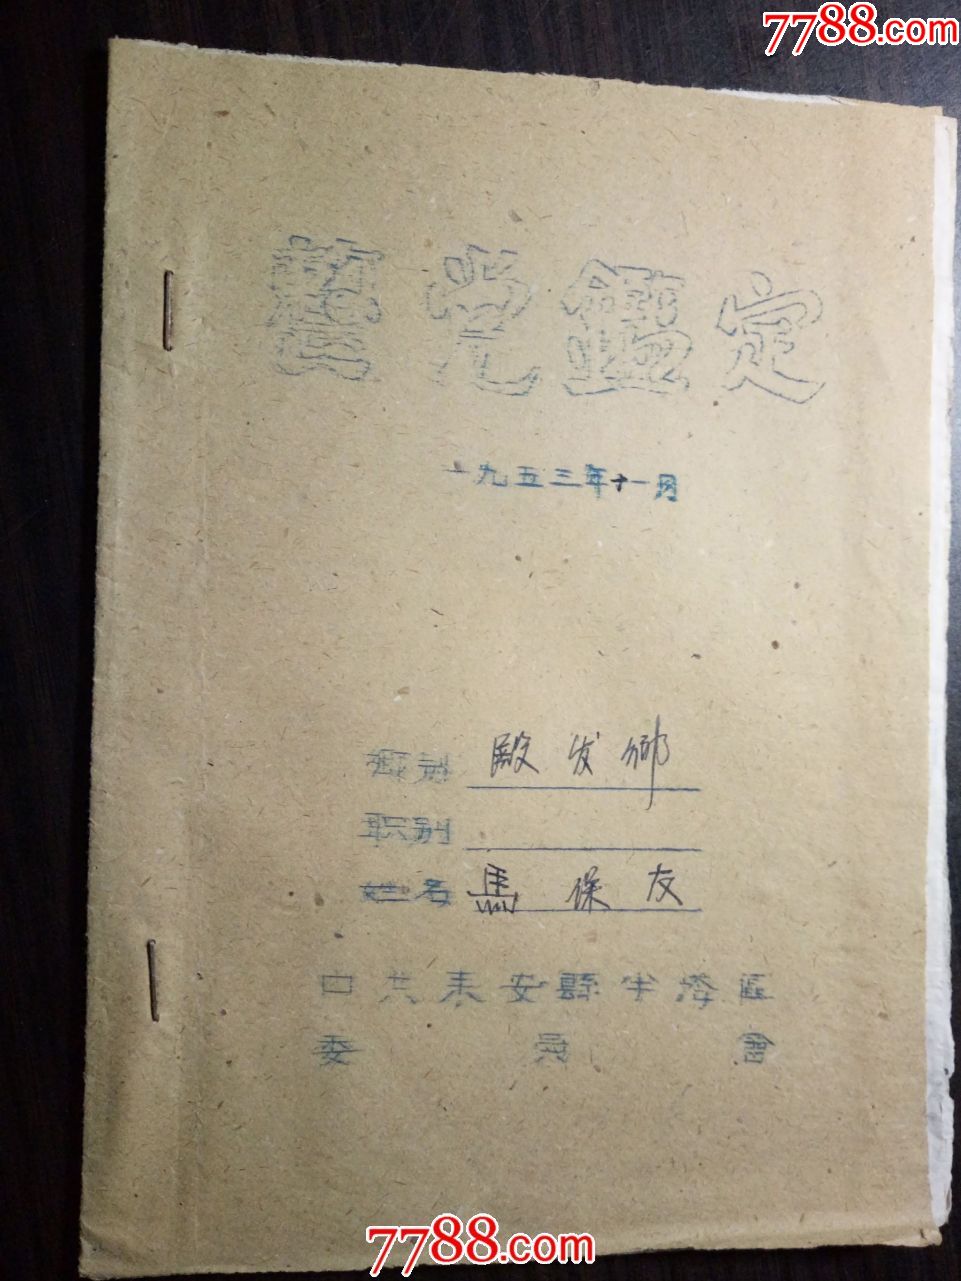 7788.com
整党鑑定
一九五三年十一月
殿发鄉
职别
姓名 馬保友
中共泰安縣 區
委員會
7788.com